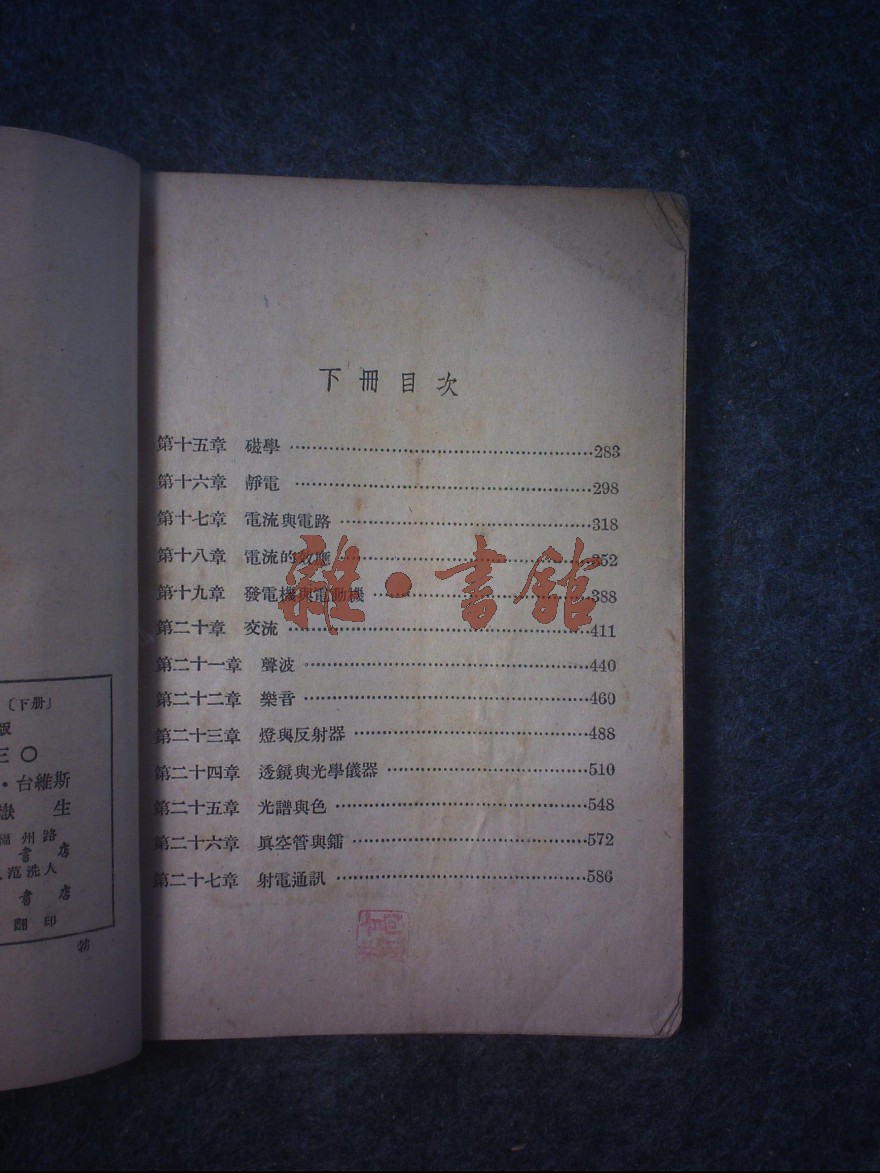 下冊目次
第十五章 磁學 283
第十六章 靜電 298
第十七章 電流與電路 318
第十八章 電流的效應 352
第十九章 發電機與電動機 388
第二十章 交流 411
第二十一章 聲波 440
第二十二章 樂音 460
第二十三章 燈與反射器 488
第二十四章 透鏡與光學儀器 510
第二十五章 光譜與色 548
第二十六章 眞空管與鐳 572
第二十七章 射電通訊 586
雜·書館
〔下册〕
版
三〇
·台維斯
生
福州路
書店
范洗人
書店
翻印
勃